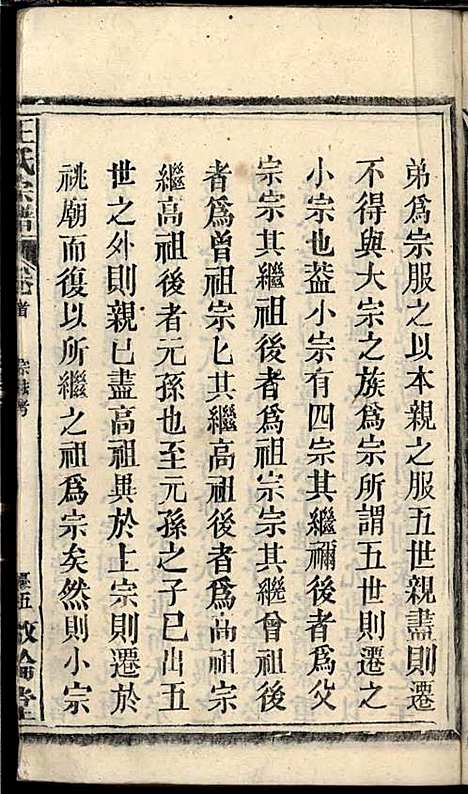 弟爲宗服之以本親之服五世親盡則遷
不得與大宗之族爲宗所謂五世則遷之
小宗也葢小宗有四宗其繼禰後者爲父
宗宗其繼祖後者爲祖宗宗其繼曾祖後
者爲曾祖宗匕其繼高祖後者爲高祖宗
繼高祖後者元孫也至元孫之子已出五
世之外則親已盡高祖畀於上宗則遷於
祧廟而復以所繼之祖爲宗矣然則小宗
王氏宗譜 卷之首 宗法考